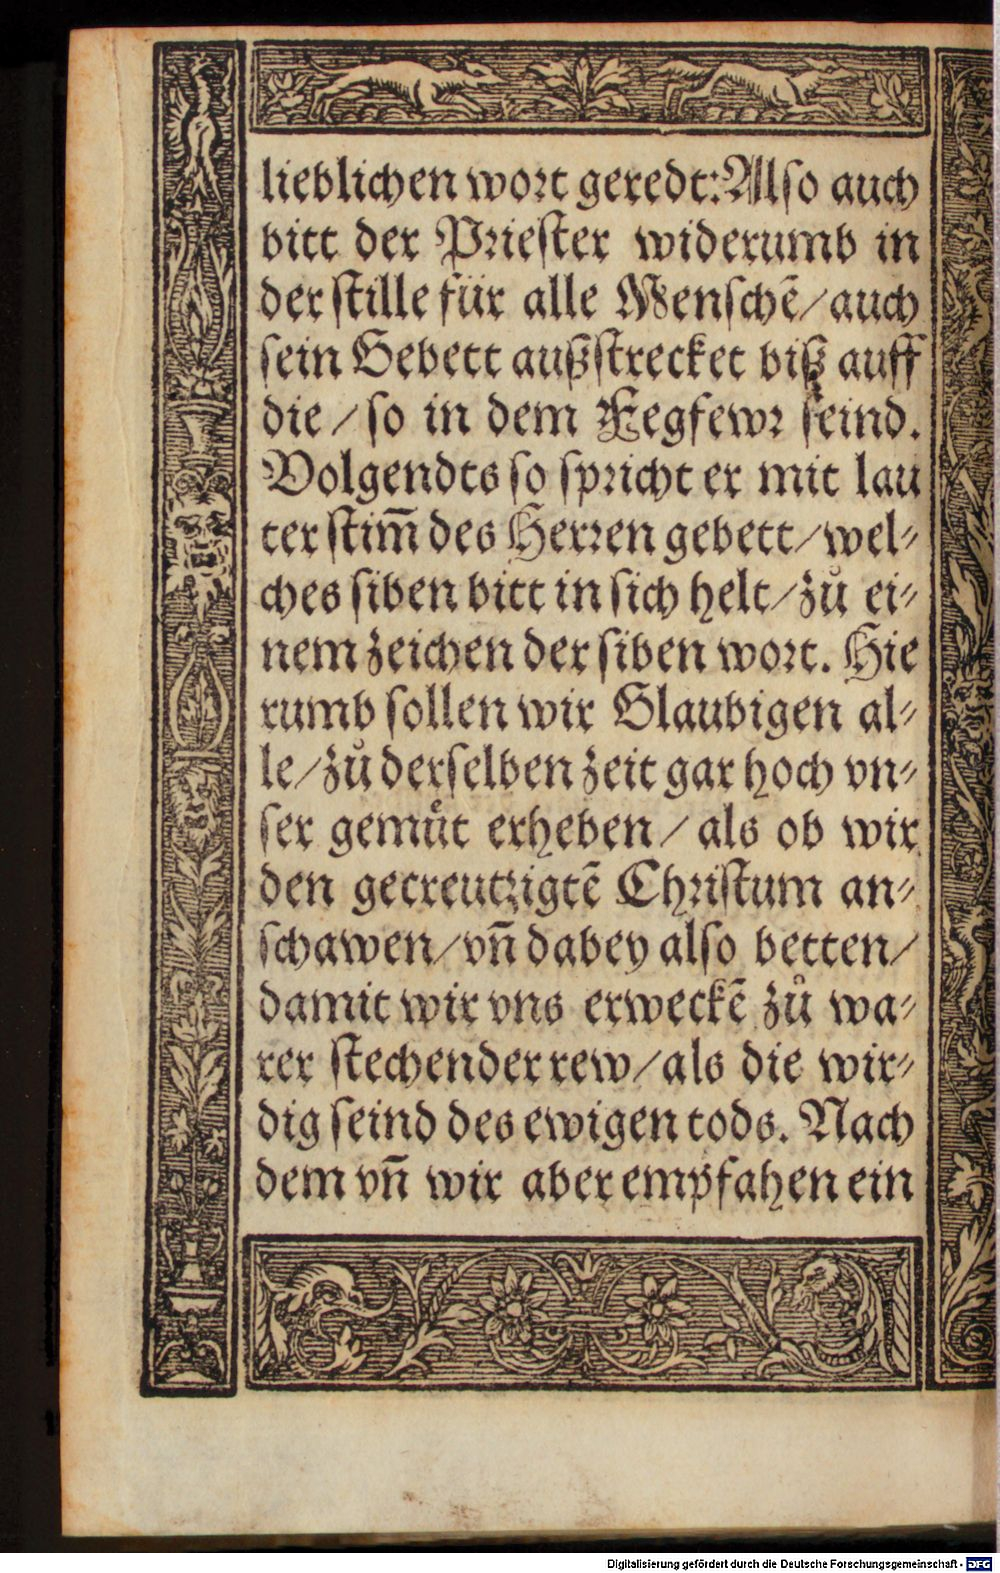 lieblichen wort geredt: Also auch
bitt der Priester widerumb in
der stille für alle Menschē / auch
sein Gebett außstrecket biß auff
die / so in dem Fegfewr seind.
Volgendts so spricht er mit lau
ter stim̄ des Herren gebett / wel⸗
ches siben bitt in sich helt / zů ei⸗
nem zeichen der siben wort. Hie
rumb sollen wir Glaubigen al⸗
le / zů derselben zeit gar hoch vn⸗
ser gemuͤt erheben / als ob wir
den gecreutzigtē Christum an⸗
schawen / vn̄ dabey also betten /
damit wir vns erweckē zů wa⸗
rer stechender rew / als die wir⸗
dig seind des ewigen tods. Nach
dem vn̄ wir aber empfahen ein
Digitalisierung gefördert durch die Deutsche Forschungsgemeinschaft - DFG